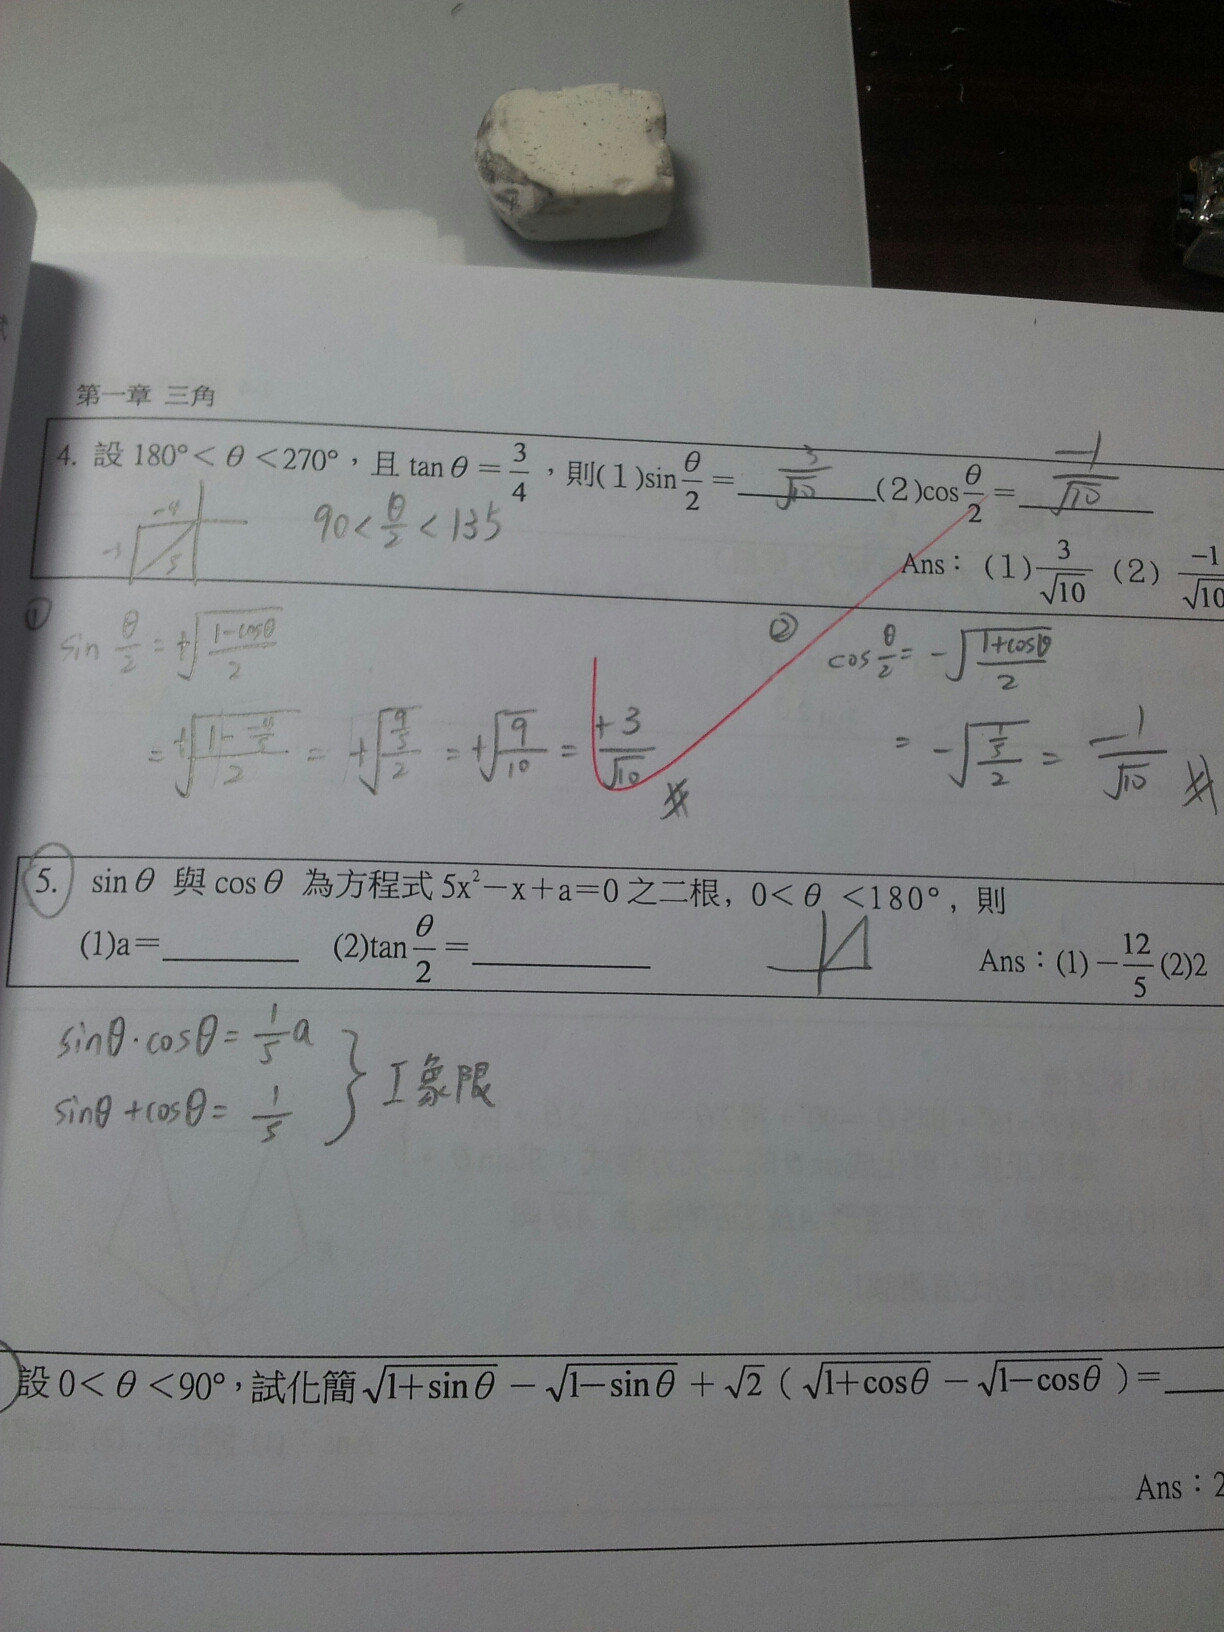 第一章 三角
4. 設 180°< θ <270°，且 tan θ = 3/4，則(1)sin θ/2 = 3/√10 (2)cos θ/2 = -1/√10
-4
-3
5
90 < θ/2 < 135
Ans： (1) 3/√10 (2) -1/√10
①
sin θ/2 = +√((1-cosθ)/2)
= +√((1-(-4/5))/2) = +√((9/5)/2) = +√(9/10) = +3/√10 #
②
cos θ/2 = -√((1+cosθ)/2)
= -√((1/5)/2) = -1/√10 #
5. sin θ 與 cos θ 為方程式 5x²－x＋a＝0 之二根, 0< θ <180°, 則
(1)a＝ (2)tan θ/2 ＝
Ans：(1)－12/5 (2)2
sinθ·cosθ = 1/5 a
sinθ + cosθ = 1/5
I 象限
設 0< θ <90°, 試化簡 √(1+sinθ) － √(1－sinθ) + √2 ( √(1+cosθ) － √(1－cosθ) ) =
Ans：2